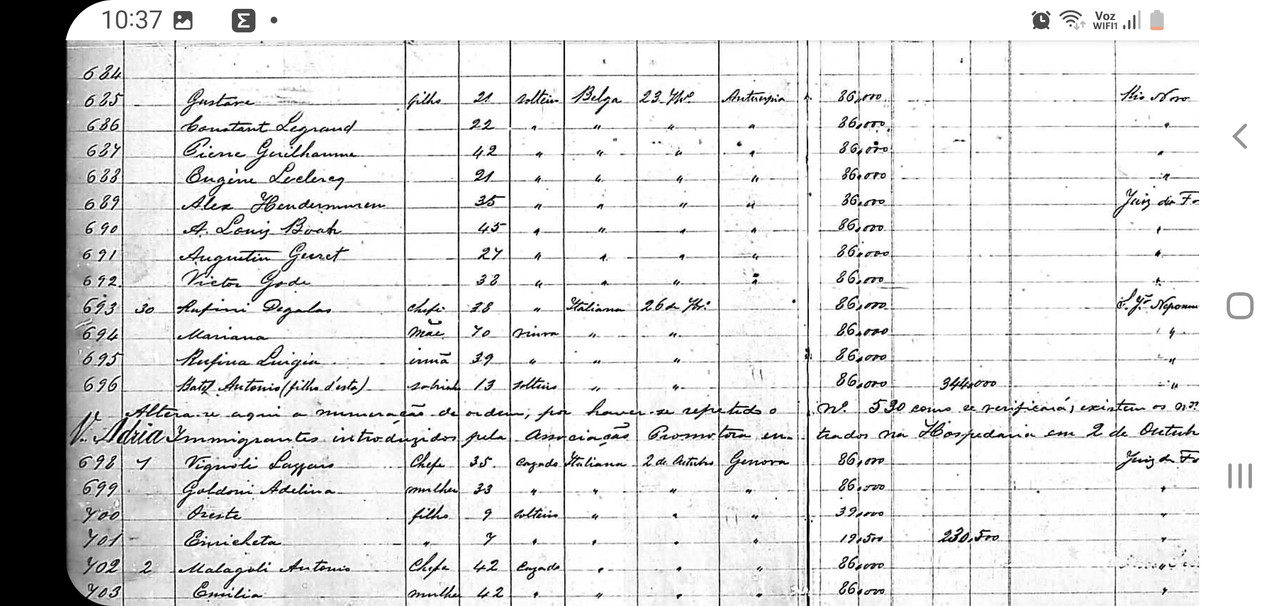 10:37 Voz WIFI1
684
685 Gustave filho 21 solteiro Belga 23 Antuerpia " 86,000 Rio Novo
686 Constant Legrand 22 " " " " 86,000 "
687 Pierre Guilhaume 42 " " " " 86,000 "
688 Eugène Leclercq 21 " " " " 86,000 "
689 Alex 35 " " " " 86,000 Juiz de Fo
690 A. Louis 45 " " " " 86,000 "
691 Augustin 27 " " " " 86,000 "
692 Victor Gode 38 " " " " 86,000 "
693 30 Rufini Chefe 38 " Italiana 26 de 86,000
694 Mariana Mãe 70 viuva " " 86,000 " "
695 Rufina Luigia irmã 39 " " " 86,000 "
696 Antonio (filho d'esta) 13 solteiro " " 86,000 344,000 "
Altera-se aqui a numeração de ordem, por haver-se repetido o nº 530 como se verificará; existem os
V. Adria Immigrantes introduzidos pela Associação Promotora en- trados na Hospedaria em 2 de Outub
698 1 Vignoli Chefe 35 Cazado Italiana 2 de Outubro Genova 86,000 Juiz de Fo
699 Goldoni Adelina mulher 33 " " " " 86,000 "
700 Oreste filho 9 solteiro " " " 39,000 "
701 Enricheta " 7 " " " " 19,500 230,500 "
702 2 Malagoli Antonio Chefe 42 Cazado " " " 86,000 "
703 Emilia mulher 42 " " " " 86,000 "